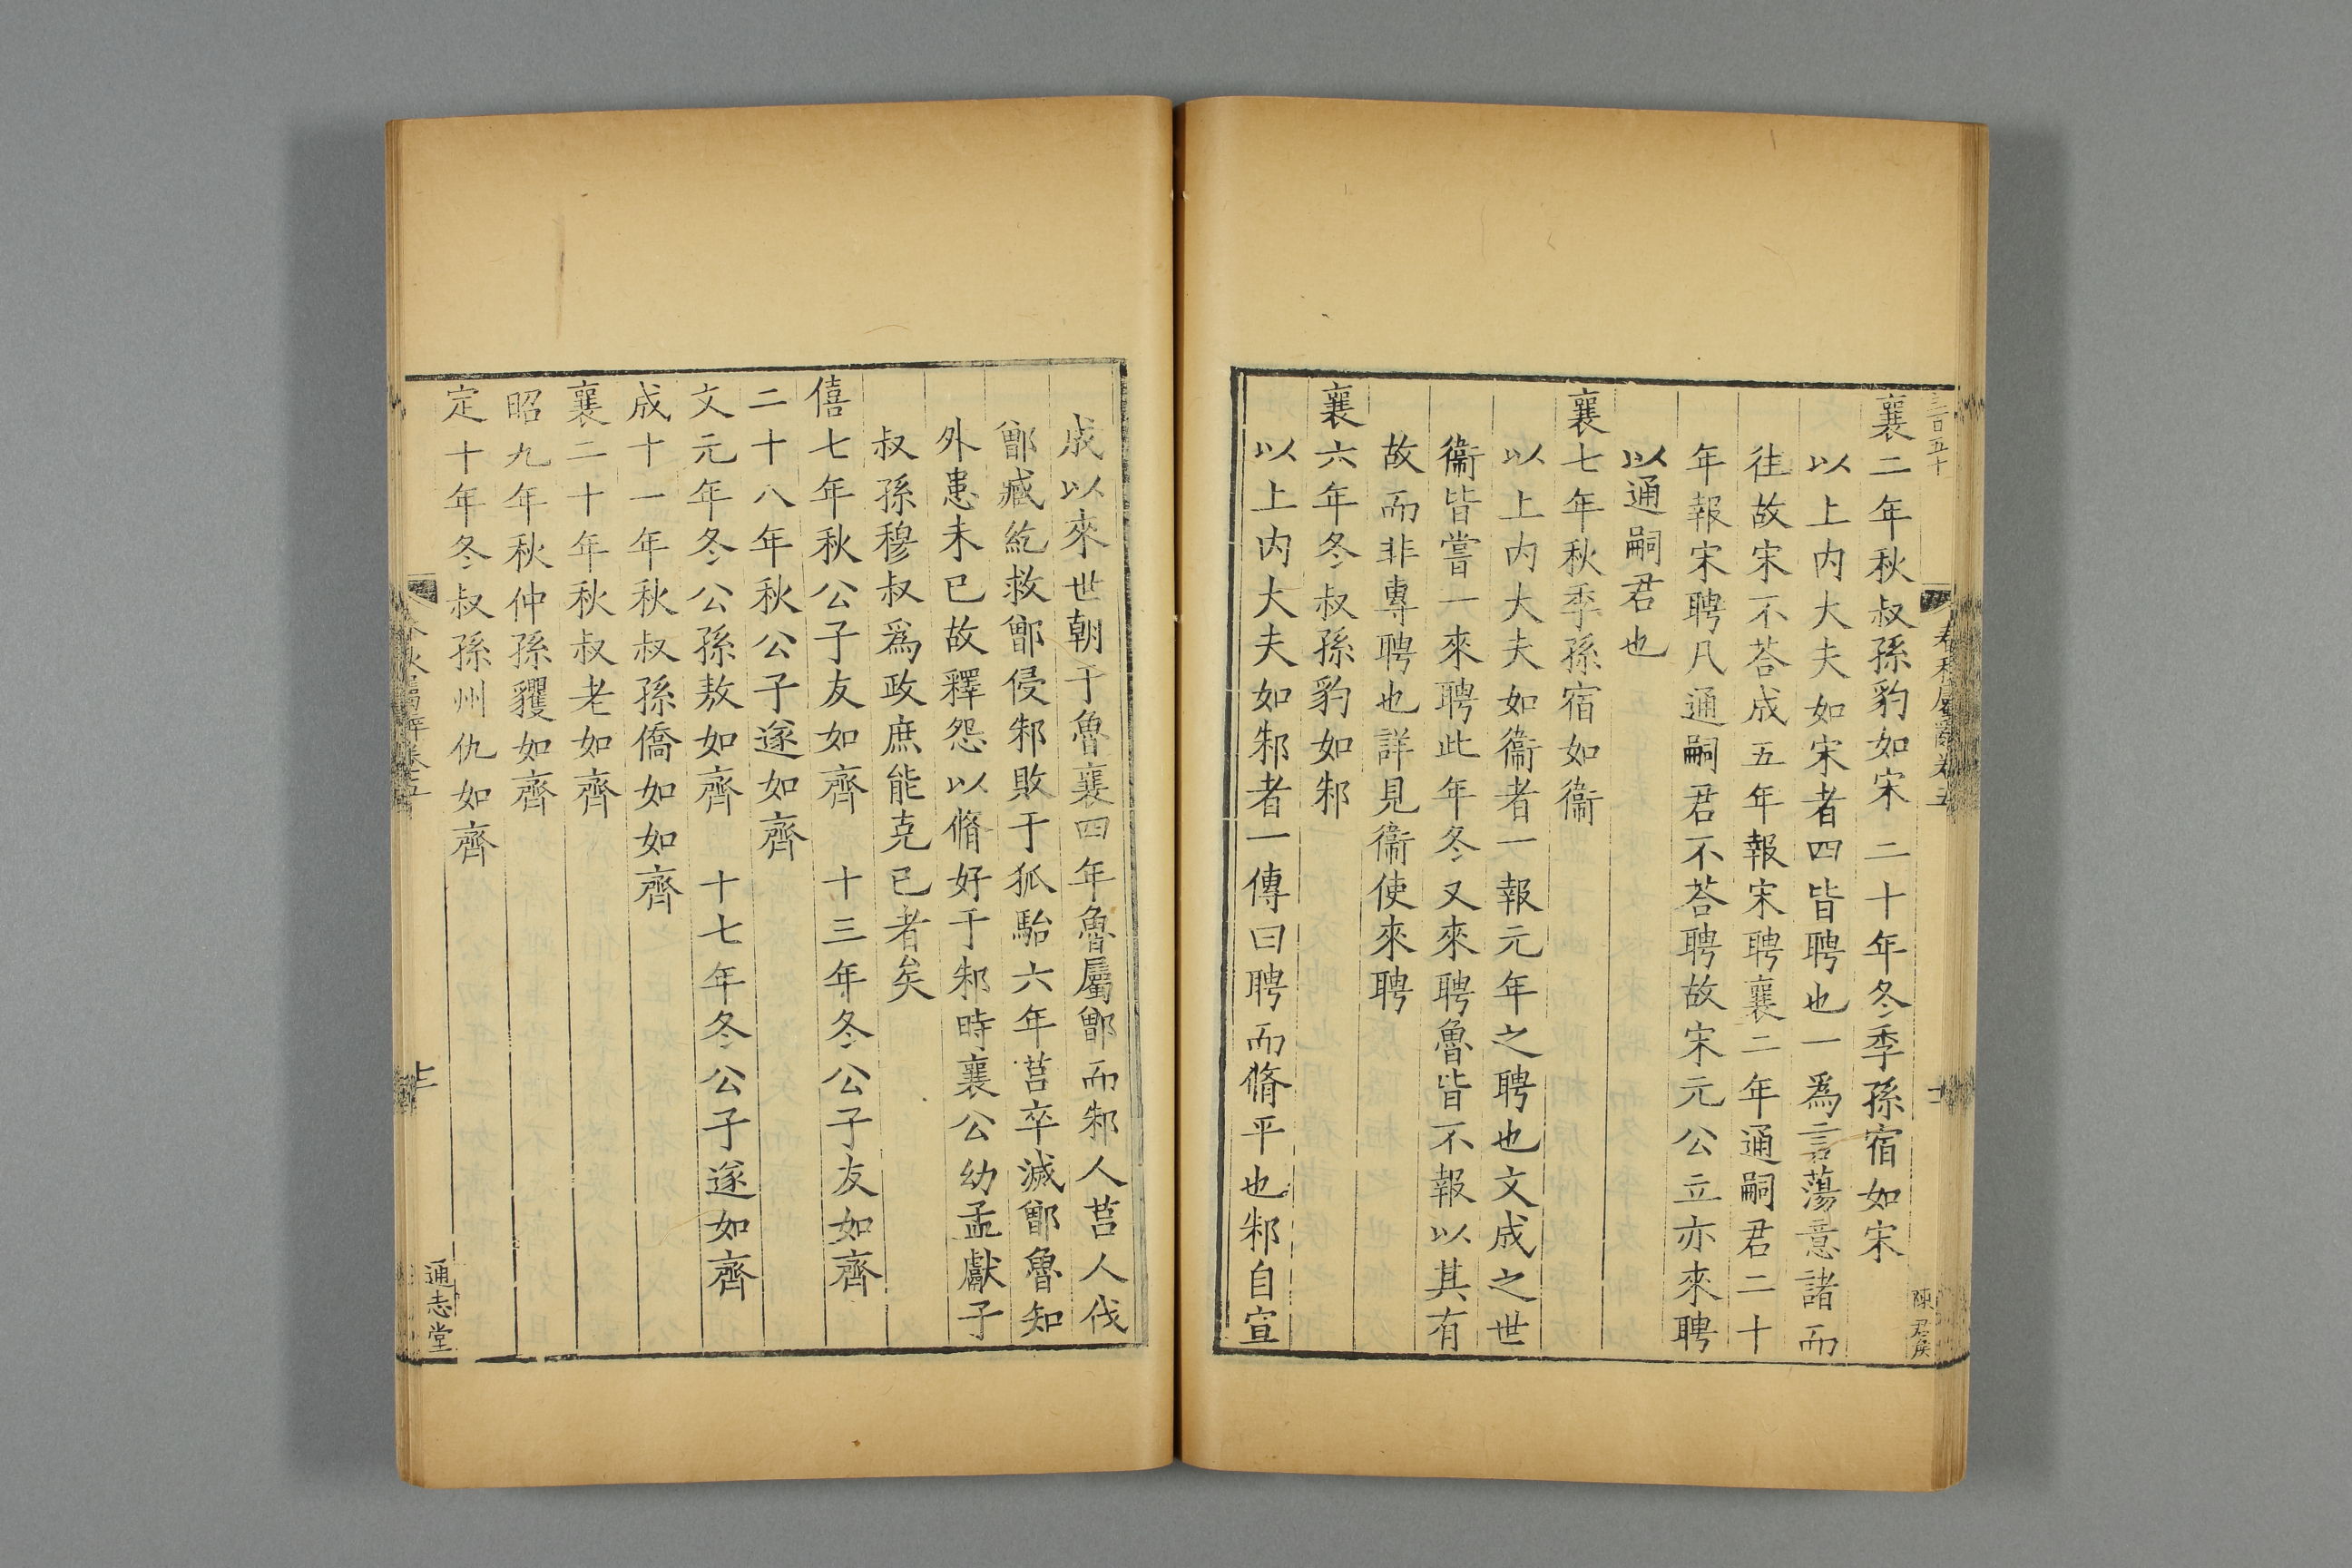 三百五十
春秋屬辭卷五
十二
陳君矦
襄二年秋叔孫豹如宋 二十年冬季孫宿如宋
以上内大夫如宋者四皆聘也一爲言蕩意諸而
往故宋不荅成五年報宋聘襄二年通嗣君二十
年報宋聘凡通嗣君不荅聘故宋元公立亦來聘
以通嗣君也
襄七年秋季孫宿如衞
以上内大夫如衞者一報元年之聘也文成之世
衞皆嘗一來聘此年冬又來聘魯皆不報以其有
故而非專聘也詳見衞使來聘
襄六年冬叔孫豹如邾
以上内大夫如邾者一傳曰聘而脩平也邾自宣
成以來世朝于魯襄四年魯屬鄫而邾人莒人伐
鄫臧紇救鄫侵邾敗于狐駘六年莒卒滅鄫魯知
外患未已故釋怨以脩好于邾時襄公幼孟獻子
叔孫穆叔爲政庶能克已者矣
僖七年秋公子友如齊 十三年冬公子友如齊
二十八年秋公子遂如齊
文元年冬公孫敖如齊 十七年冬公子遂如齊
成十一年秋叔孫僑如如齊
襄二十年秋叔老如齊
昭九年秋仲孫貜如齊
定十年冬叔孫州仇如齊
春秋屬辭卷五
通志堂